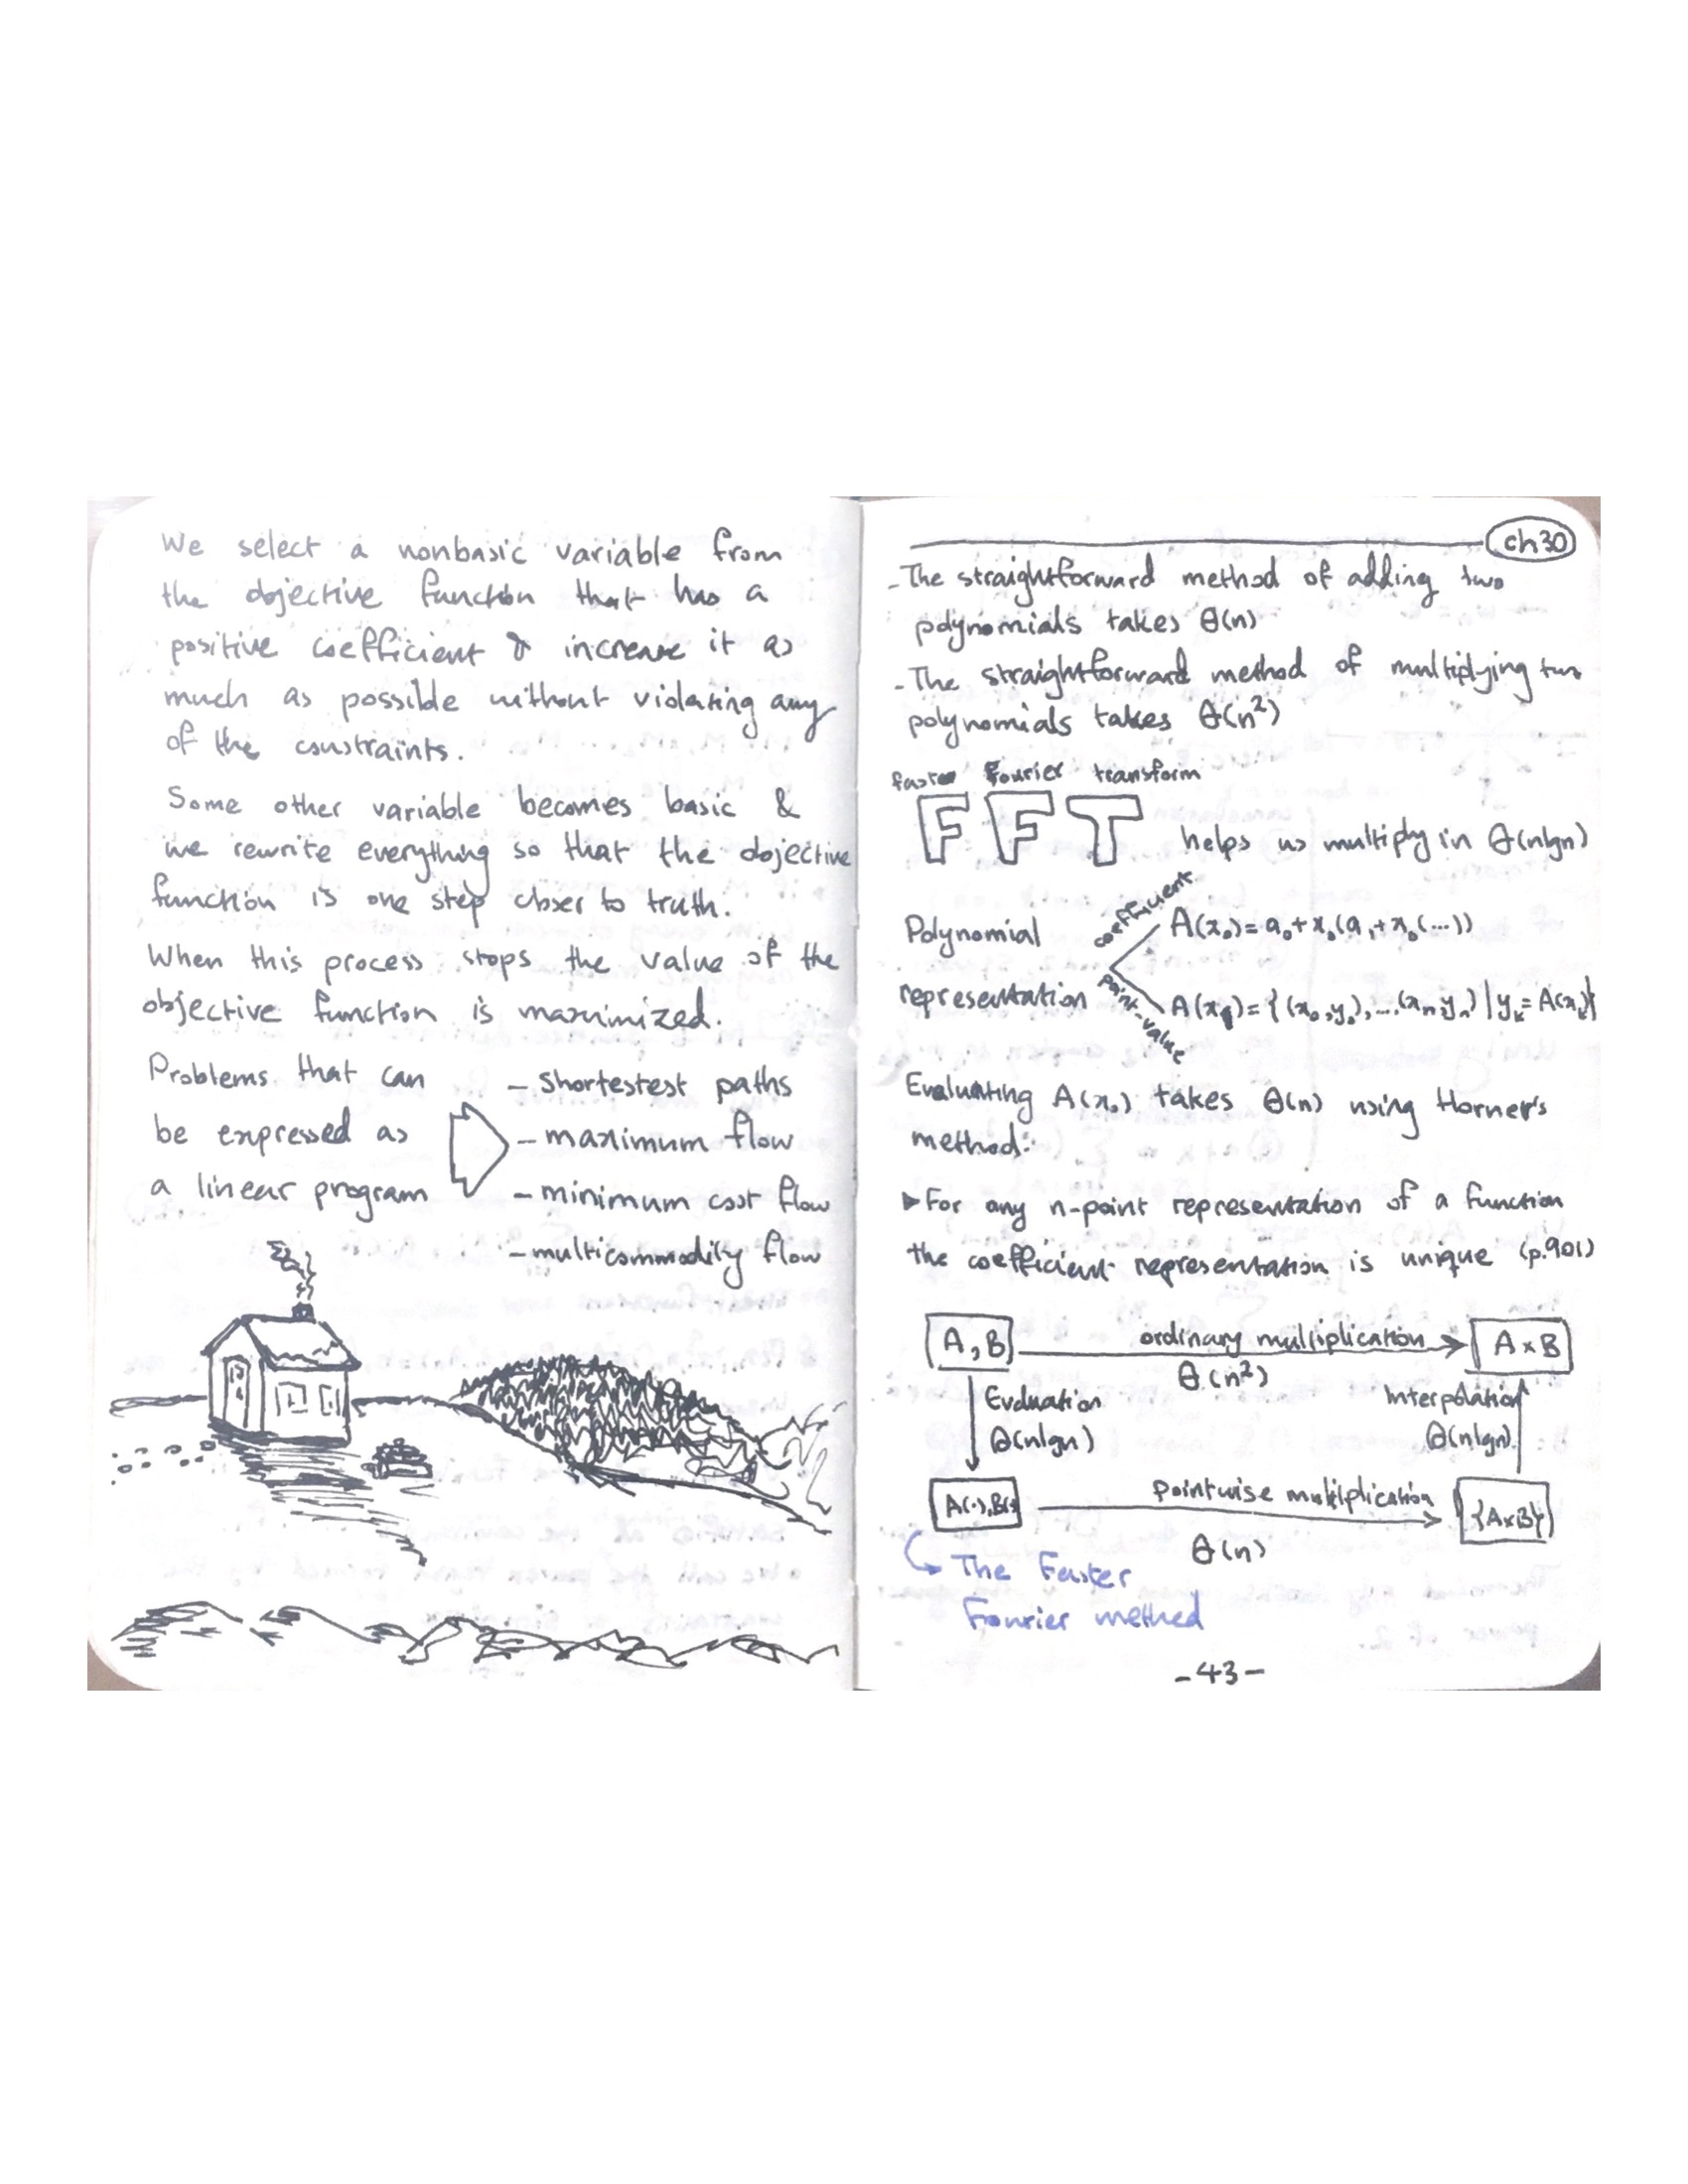 We select a nonbasic variable from
the objective function that has a
positive coefficient & increase it as
much as possible without violating any
of the constraints.
Some other variable becomes basic &
we rewrite everything so that the objective
function is one step closer to truth.
When this process stops the value of the
objective function is maximized.
Problems that can
be expressed as
a linear program
- Shortestest paths
- maximum flow
- minimum cost flow
- multicommodity flow
ch30
- The straightforward method of adding two
polynomials takes Θ(n)
- The straightforward method of multiplying two
polynomials takes Θ(n²)
faster Fourier transform
FFT helps us multiply in Θ(nlgn)
Polynomial
representation
coefficient
A(x₀)= a₀+x₀(a₁+x₀(...))
point-value
A(x)={(x₀,y₀),...(xₙ,yₙ) | yₖ= A(xₖ)}
Evaluating A(x₀) takes Θ(n) using Horner's
method:
▶ For any n-point representation of a function
the coefficient representation is unique (p.901)
A, B
ordinary multiplication
Θ(n²)
A×B
Evaluation
Θ(nlgn)
Interpolation
Θ(nlgn)
A(·), B(·)
pointwise multiplication
Θ(n)
{A×B}
The Faster
Fourier method
-43-